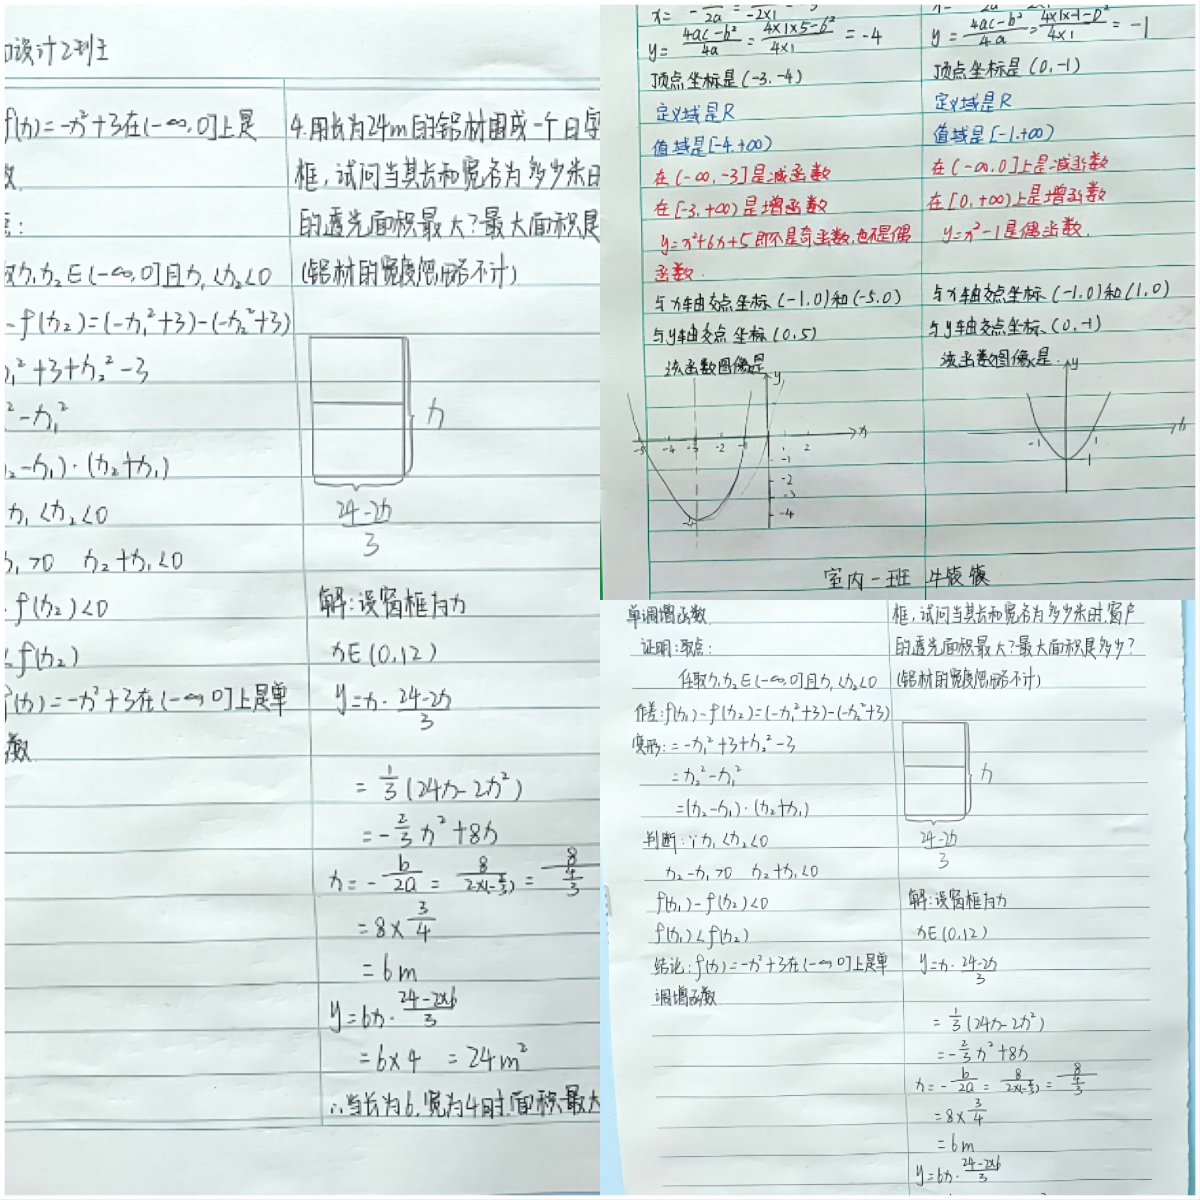 设计2班王
f(x)=-x²+3在(-∞,0]上是
取x₁,x₂∈(-∞,0]且x₁<x₂<0
-f(x₂)=(-x₁²+3)-(-x₂²+3)
x₁²+3+x₂²-3
²-x₁²
x₂-x₁)·(x₂+x₁)
x₁<x₂<0
x₁>0 x₂+x₁<0
-f(x₂)<0
<f(x₂)
f(x)=-x²+3在(-∞,0]上是单
数
4.用长为24m的铝材围成一个日字
框,试问当其长和宽各为多少米时
的透光面积最大?最大面积是
(铝材的宽度忽略不计)
x
24-2x
3
解:设窗框为x
x∈(0,12)
y=x·24-2x/3
=1/3(24x-2x²)
=-2/3x²+8x
x=-b/2a=8/2×(-2/3)=8/4/3
=8×3/4
=6m
y=6x·24-2×6/3
=6×4 =24m²
∴当长为6,宽为4时,面积最大
x=-/2a=/-2×1
y=4ac-b²/4a=4×1×5-6²/4×1=-4
顶点坐标是(-3,-4)
定义域是R
值域是[-4,+∞)
在(-∞,-3]是减函数
在[-3,+∞)是增函数
y=x²+6x+5即不是奇函数,也不是偶
函数.
与x轴交点坐标(-1,0)和(-5,0)
与y轴交点坐标(0,5)
该函数图像是
y
x
-5 -4 -3 -2 -1 2
-1
-2
-3
-4
y=4ac-b²/4a=4×1×-1-0²/4×1=-1
顶点坐标是(0,-1)
定义域是R
值域是[-1,+∞)
在(-∞,0]上是减函数
在[0,+∞)上是增函数
y=x²-1是偶函数.
与x轴交点坐标(-1,0)和(1,0)
与y轴交点坐标(0,-1)
该函数图像是.
y
x
-1 1
-1
室内一班
单调增函数
证明:取点:
任取x₁,x₂∈(-∞,0]且x₁<x₂<0
作差:f(x₁)-f(x₂)=(-x₁²+3)-(-x₂²+3)
变形:=-x₁²+3+x₂²-3
=x₂²-x₁²
=(x₂-x₁)·(x₂+x₁)
判断:∵x₁<x₂<0
x₂-x₁>0 x₂+x₁<0
f(x₁)-f(x₂)<0
f(x₁)<f(x₂)
结论:f(x)=-x²+3在(-∞,0]上是单
调增函数
框,试问当其长和宽各为多少米时,窗户
的透光面积最大?最大面积是多少?
(铝材的宽度忽略不计)
x
24-2x
3
解:设窗框为x
x∈(0,12)
y=x·24-2x/3
=1/3(24x-2x²)
=-2/3x²+8x
x=-b/2a=8/2×(-2/3)=8/4/3
=8×3/4
=6m
y=6x·24-2×6/3